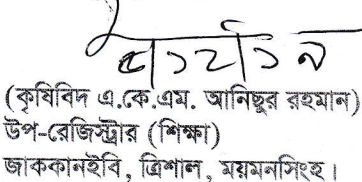 (কৃষিবিদ এ.কে.এম. আনিছুর রহমান)
উপ-রেজিস্ট্রার (শিক্ষা)
জাককানইবি, ত্রিশাল, ময়মনসিংহ।